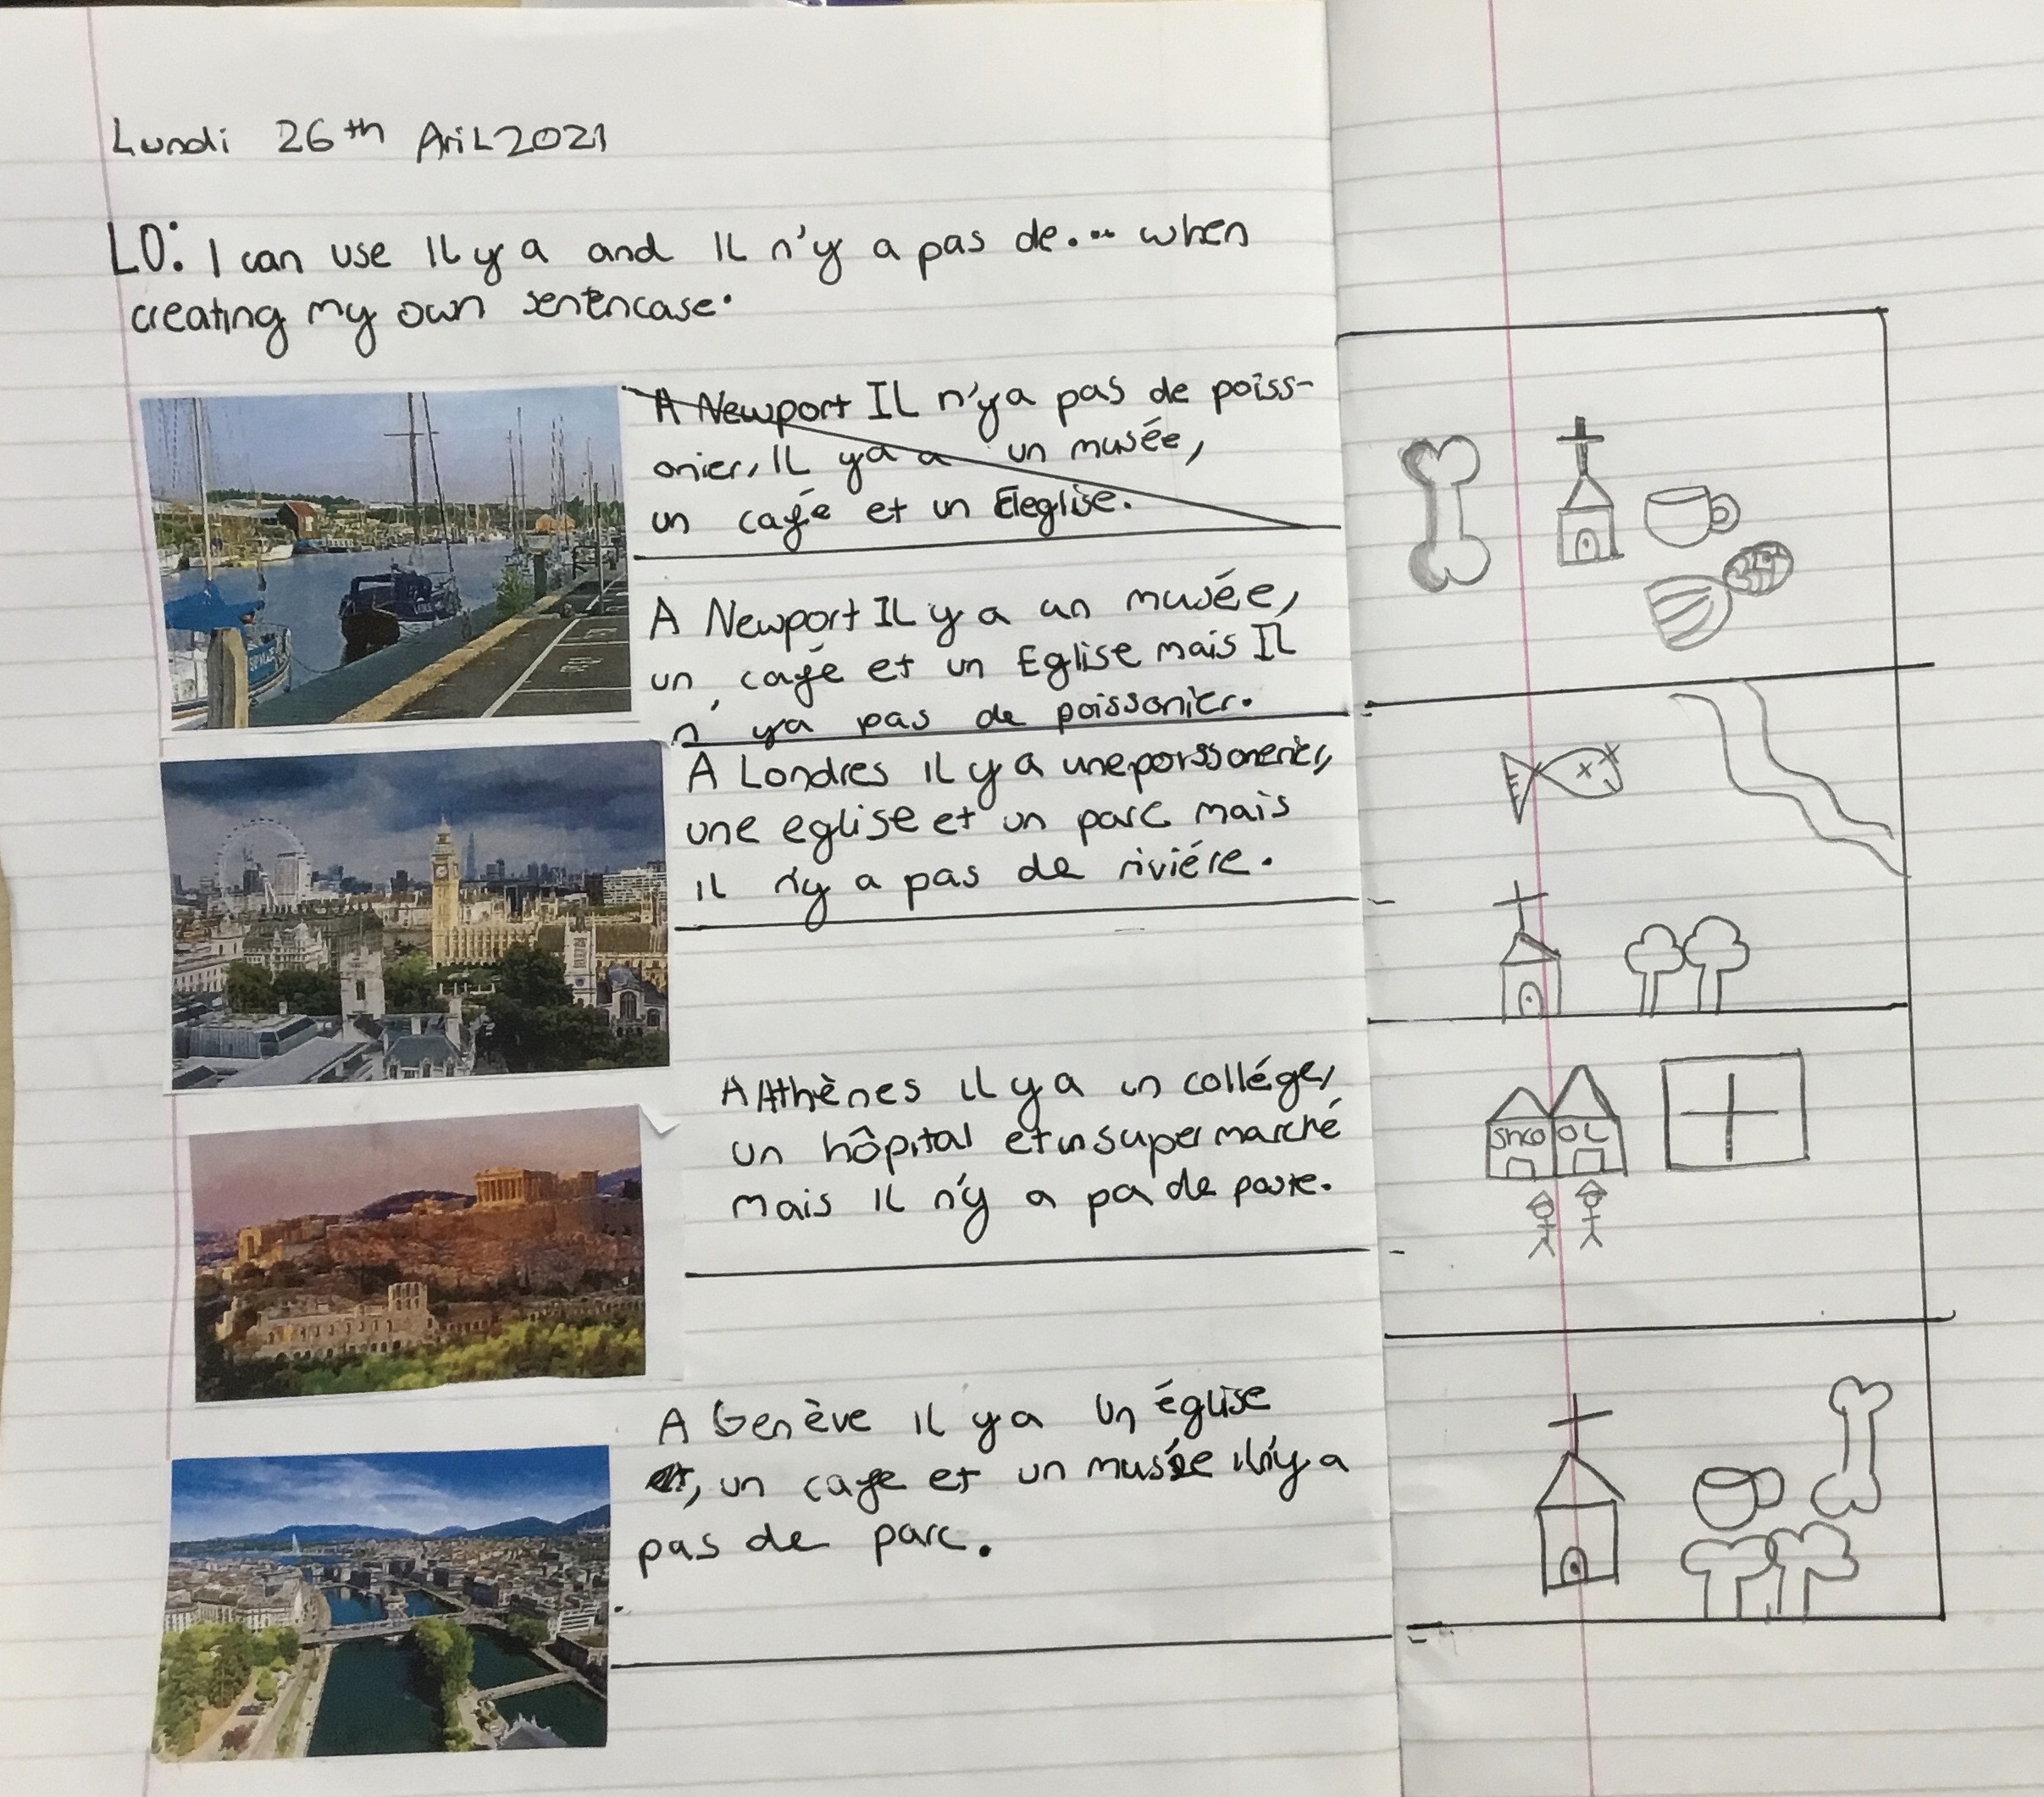 Lundi 26th AriL 2021
LO: I can use Il y a and Il n'y a pas de... when
creating my own sentencase.
A Newport IL n'ya pas de poiss-
onier, IL ya a un musée,
un café et un Eleglise.
A Newport Il y a un musée,
un café et un Eglise mais Il
n' ya pas de poissonier.
A Londres il y a une poissonerier,
une eglise et un parc mais
il n'y a pas de riviére.
A Athènes il y a un collége,
un hôpital et un super marché
mais il n'y a pa de poste.
A Genève il y a un église
, un cafe et un musée il n'y a
pas de parc.
SHCO OL